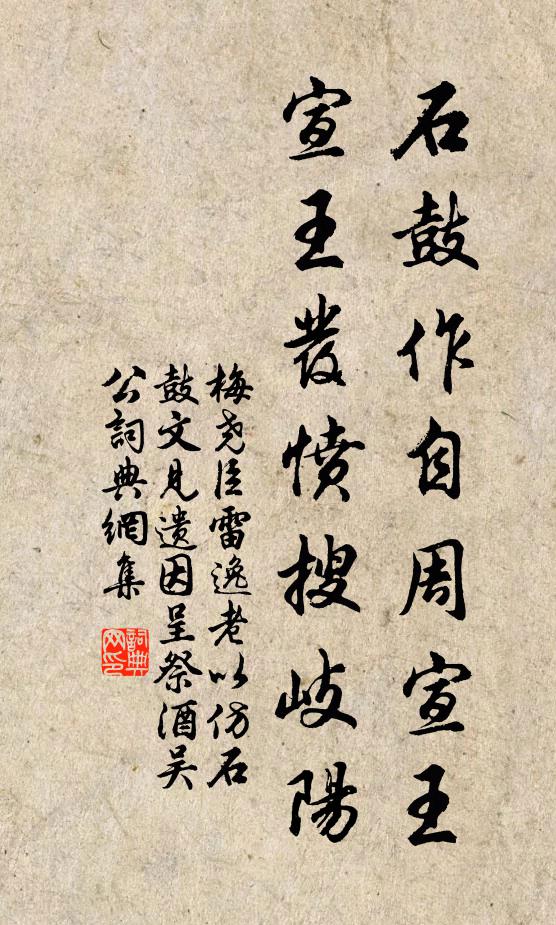 石鼓作自周宣王
宣王發憤搜岐陽
梅堯臣雷逸老以仿石
鼓文見遺因呈祭酒吴
公詞典網集
詞典
网印